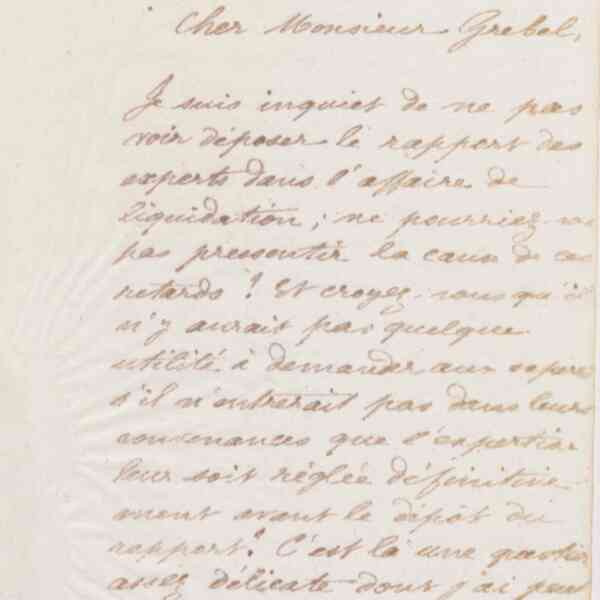 Cher Monsieur Grebel,
Je suis inquiet de ne pas
voir déposer le rapport des
experts dans l'affaire de
liquidation; ne pourriez-vous
pas pressentir la cause de ces
retards? Et croyez-vous qu'il
n'y aurait pas quelque
utilité à demander aux experts
s'il n'entrerait pas dans leurs
convenances que l'expertise
leur soit réglée définitive-
ment avant le dépôt du
rapport? C'est là une question
assez délicate dont j'ai